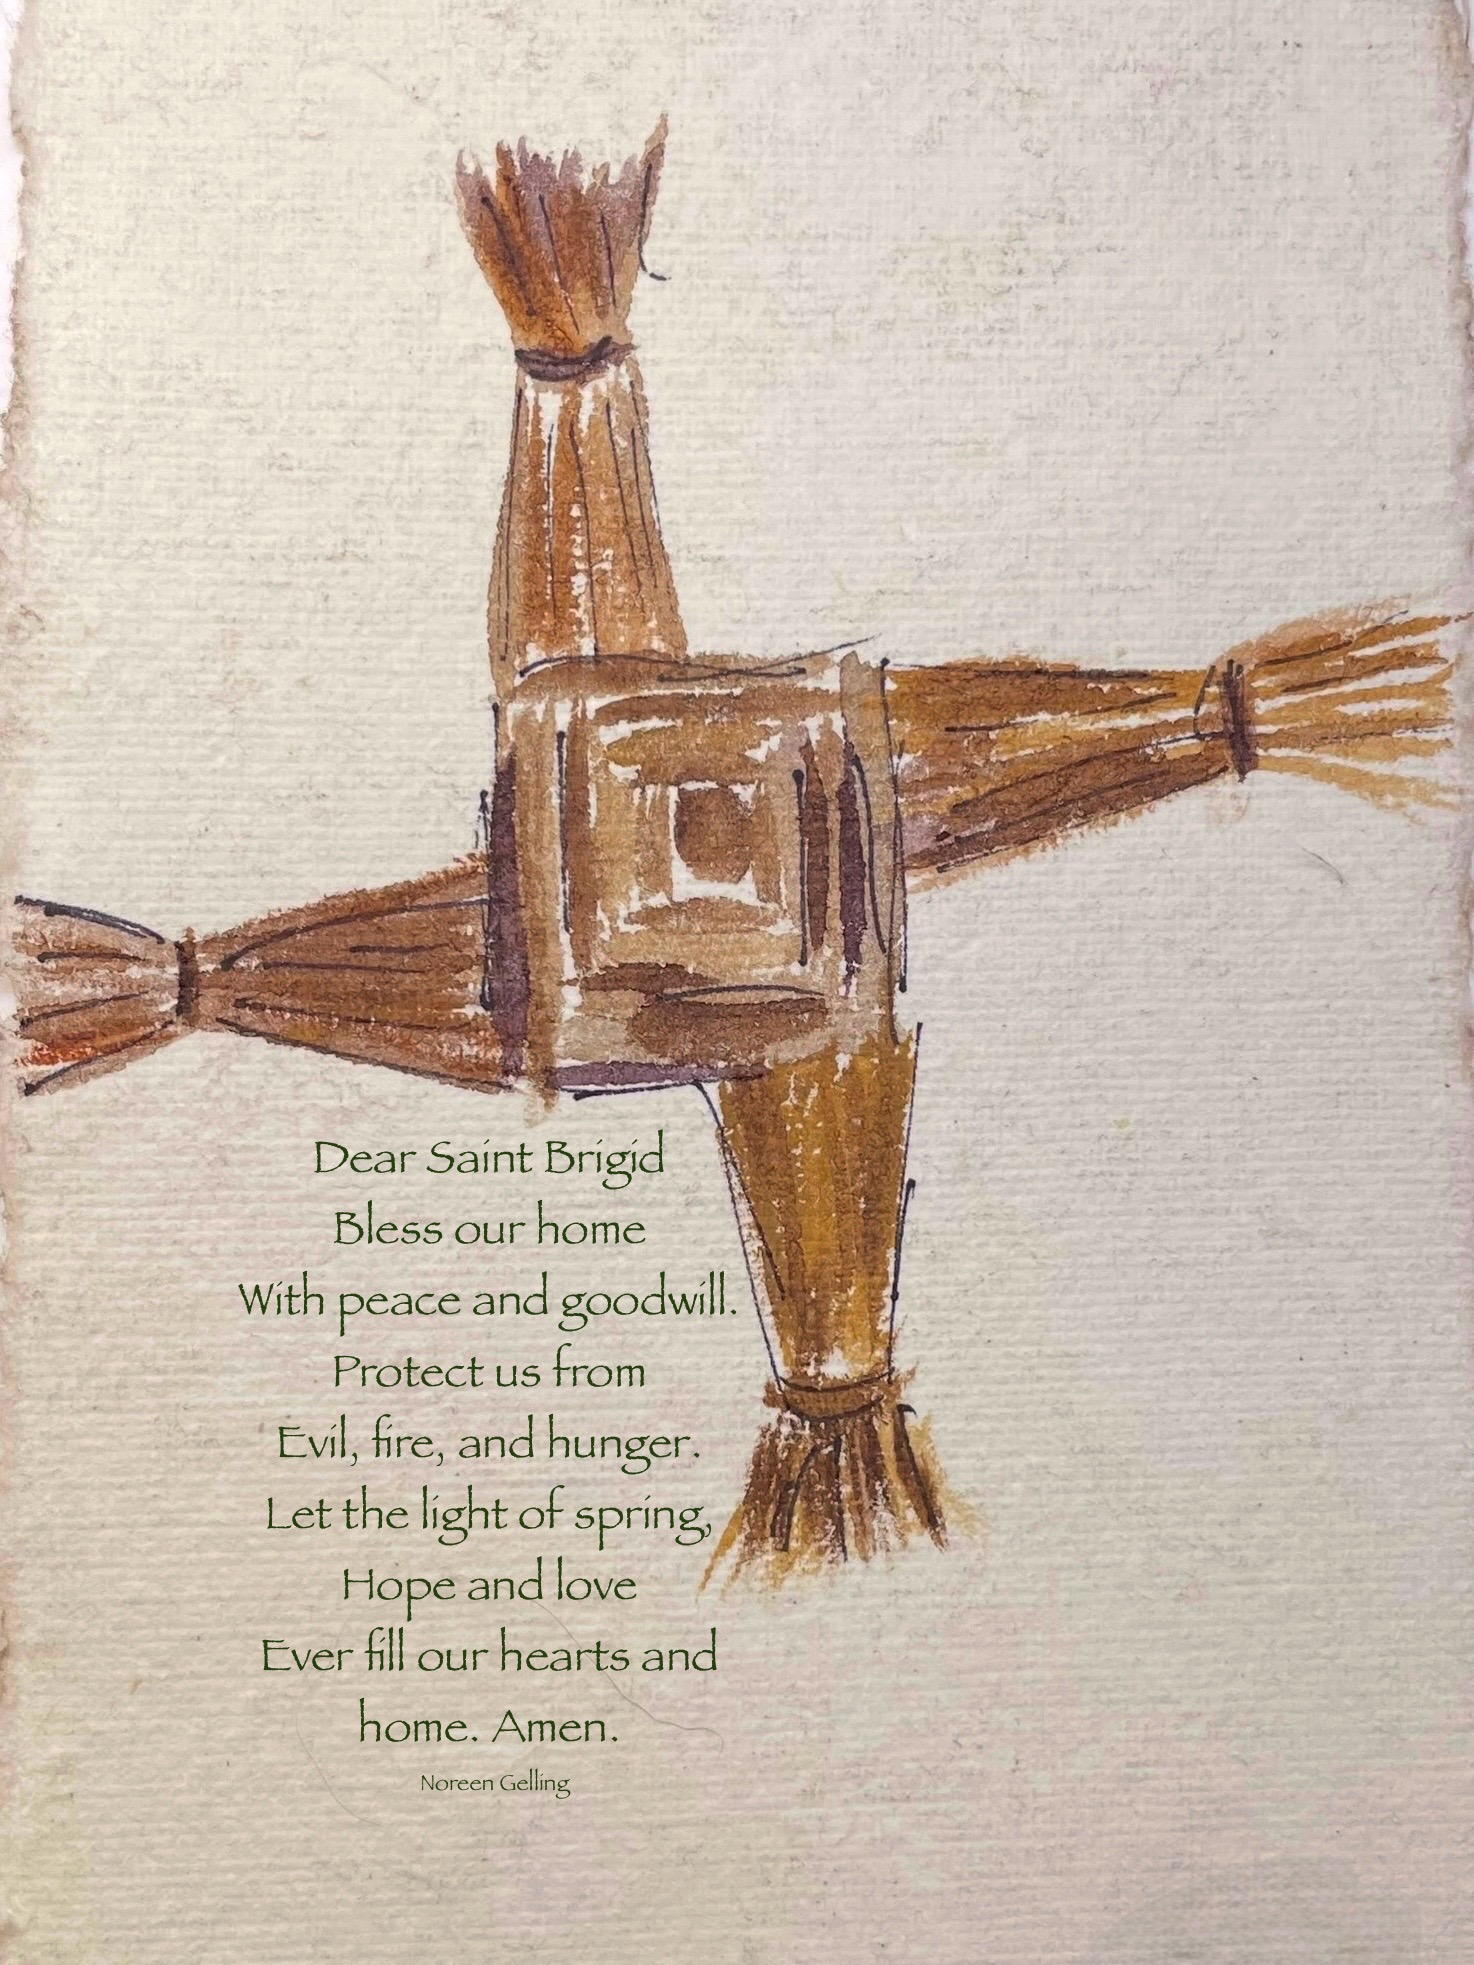 Dear Saint Brigid
Bless our home
With peace and goodwill.
Protect us from
Evil, fire, and hunger.
Let the light of spring,
Hope and love
Ever fill our hearts and
home. Amen.
Noreen Gelling